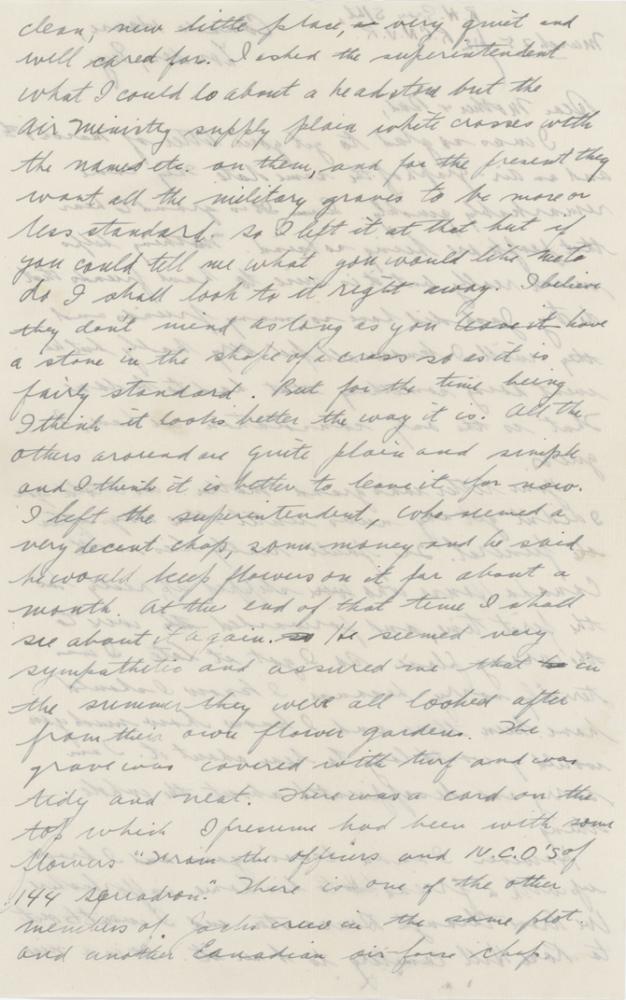 clean, new little place, very quiet and
well cared for. I asked the superintendent
what I could do about a headstone but the
Air Ministry supply plain white crosses with
the names etc. on them, and for the present they
want all the military graves to be more or
less standard. So I left it at that but if
you could tell me what you would like me to
do I shall look to it right away. I believe
they don't mind as long as you leave it have
a stone in the shape of a cross so as it is
fairly standard. But for the time being
I think it looks better the way it is. All the
others around are quite plain and simple
and I think it is better to leave it for now.
I left the superintendent, who seemed a
very decent chap, some money and he said
he would keep flowers on it for about a
month. At the end of that time I shall
see about it again. so He seemed very
sympathetic and assured me that in
the summer they were all looked after
from their own flower gardens. The
grave was covered with turf and was
tidy and neat. There was a card on the
top which I presume had been with some
flowers "From the officers and N.C.O'S of
144 squadron." There is one of the other
members of Jacks crew in the same plot.
and another Canadian air force chap